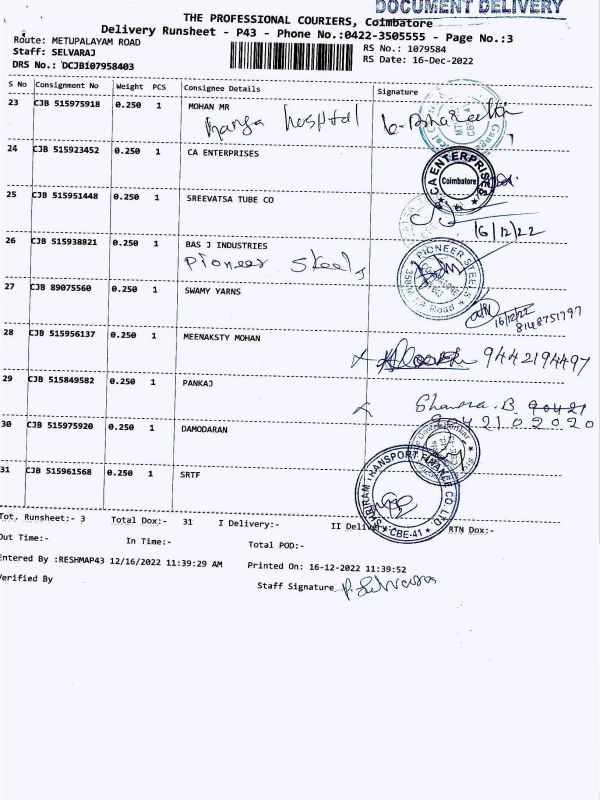 DOCUMENT DELIVERY
THE PROFESSIONAL COURIERS, Coimbatore
Delivery Runsheet - P43 - Phone No.:0422-3505555 - Page No.:3
Route: METUPALAYAM ROAD
RS No.: 1079584
Staff: SELVARAJ
RS Date: 16-Dec-2022
DRS No.: DCJB107958403
S No Consignment No Weight PCS Consignee Details Signature
23 CJB 515975918 0.250 1 MOHAN MR
Ganga hospital
24 CJB 515923452 0.250 1 CA ENTERPRISES
CA ENTERPRISES Coimbatore
25 CJB 515951448 0.250 1 SREEVATSA TUBE CO
16/12/22
26 CJB 515938821 0.250 1 BAS J INDUSTRIES
Pioneer Steels
PIONEER STEELS
27 CJB 89075560 0.250 1 SWAMY YARNS
16/12/22
8148751797
28 CJB 515956137 0.250 1 MEENAKSTY MOHAN
9442194497
29 CJB 515849582 0.250 1 PANKAJ
30 CJB 515975920 0.250 1 DAMODARAN
31 CJB 515961568 0.250 1 SRTF
SHRIRAM TRANSPORT FINANCE CO. LTD. CBE-41
Tot. Runsheet:- 3 Total Dox:- 31 I Delivery:- II Delivery:- RTN Dox:-
Out Time:- In Time:- Total POD:-
Entered By :RESHMAP43 12/16/2022 11:39:29 AM Printed On: 16-12-2022 11:39:52
Verified By Staff Signature P. Selvaraj